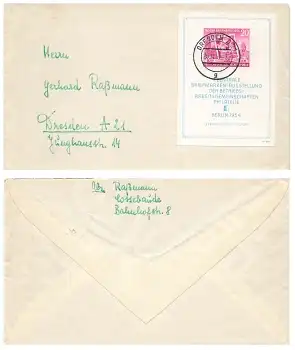 Herrn
Gerhard Raßmann
Dresden A 21
Junghansstr. 14
DRESDEN
BRIEFMARKEN-AUSSTELLUNG
DER BETRIEBS-
ARBEITSGEMEINSCHAFTEN
PHILATELIE
BERLIN 1954
Abs. Raßmann
Cossebaude
Bahnhofstr. 8